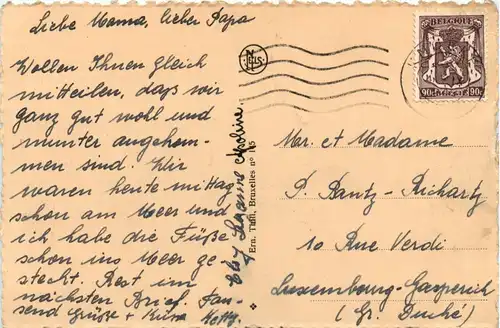 Liebe Mama, lieber Papa
Wollen Ihnen gleich
mitteilen, daß wir
ganz gut wohl und
munter angekom-
men sind. Wir
waren heute mittag
schon am Meer und
ich habe die Füße
schon ins Meer ge-
steckt. Rest im
nächsten Brief. Tau-
send Grüße + Küsse
NELS
Ern. Thill, Bruxelles nº 15
BELGIQUE
90c BELGIE 90c
Mr. et Madame
P. Bantz-Richartz
10 Rue Verdi
Luxembourg-Gasperich
(Gr. Duché)